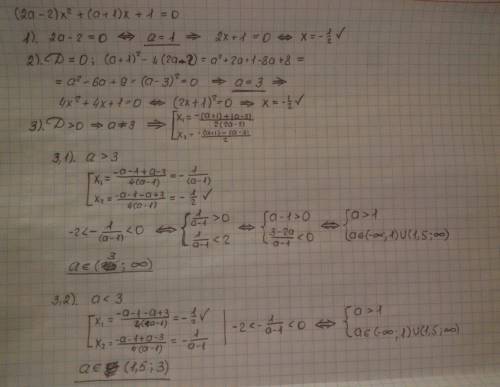 (2a-2)x² + (a+1)x + 1 = 0
1). 2a-2=0 ⇔ a=1 ⇒ 2x+1=0 ⇔ x=-1/2 ✓
2). D=0; (a+1)²-4(2a-2)=a²+2a+1-8a+8=
=a²-6a+9=(a-3)²=0 ⇒ a=3 ⇒
4x²+4x+1=0 ⇔ (2x+1)²=0 ⇒ x=-1/2 ✓
3). D>0 ⇒ a≠3 ⇒ [x₁=(-(a+1)+(a-3))/(2(2a-2))
x₂=(-(a+1)-(a-3))/2
3,1) a>3
[x₁=(-a-1+a-3)/(4(a-1))=-1/(a-1)
x₂=(-a-1-a+3)/(4(a-1))=-1/2 ✓
-2<-1/(a-1)<0 ⇔ {1/(a-1)>0 ⇔ {a-1>0 ⇔ {a>1
1/(a-1)<2 (3-2a)/(a-1)<0 a∈(-∞;1)∪(1,5;∞)
a∈(3;∞)
3,2) a<3
[x₁=(-a-1-a+3)/(4(a-1))=-1/2 ✓
x₂=(-a-1+a-3)/(4(a-1))=-1/(a-1) | -2<-1/(a-1)<0 ⇔ {a>1
a∈(-∞;1)∪(1,5;∞)
a∈(1,5;3)